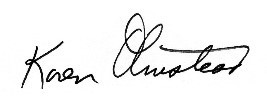 Karen Olmstead